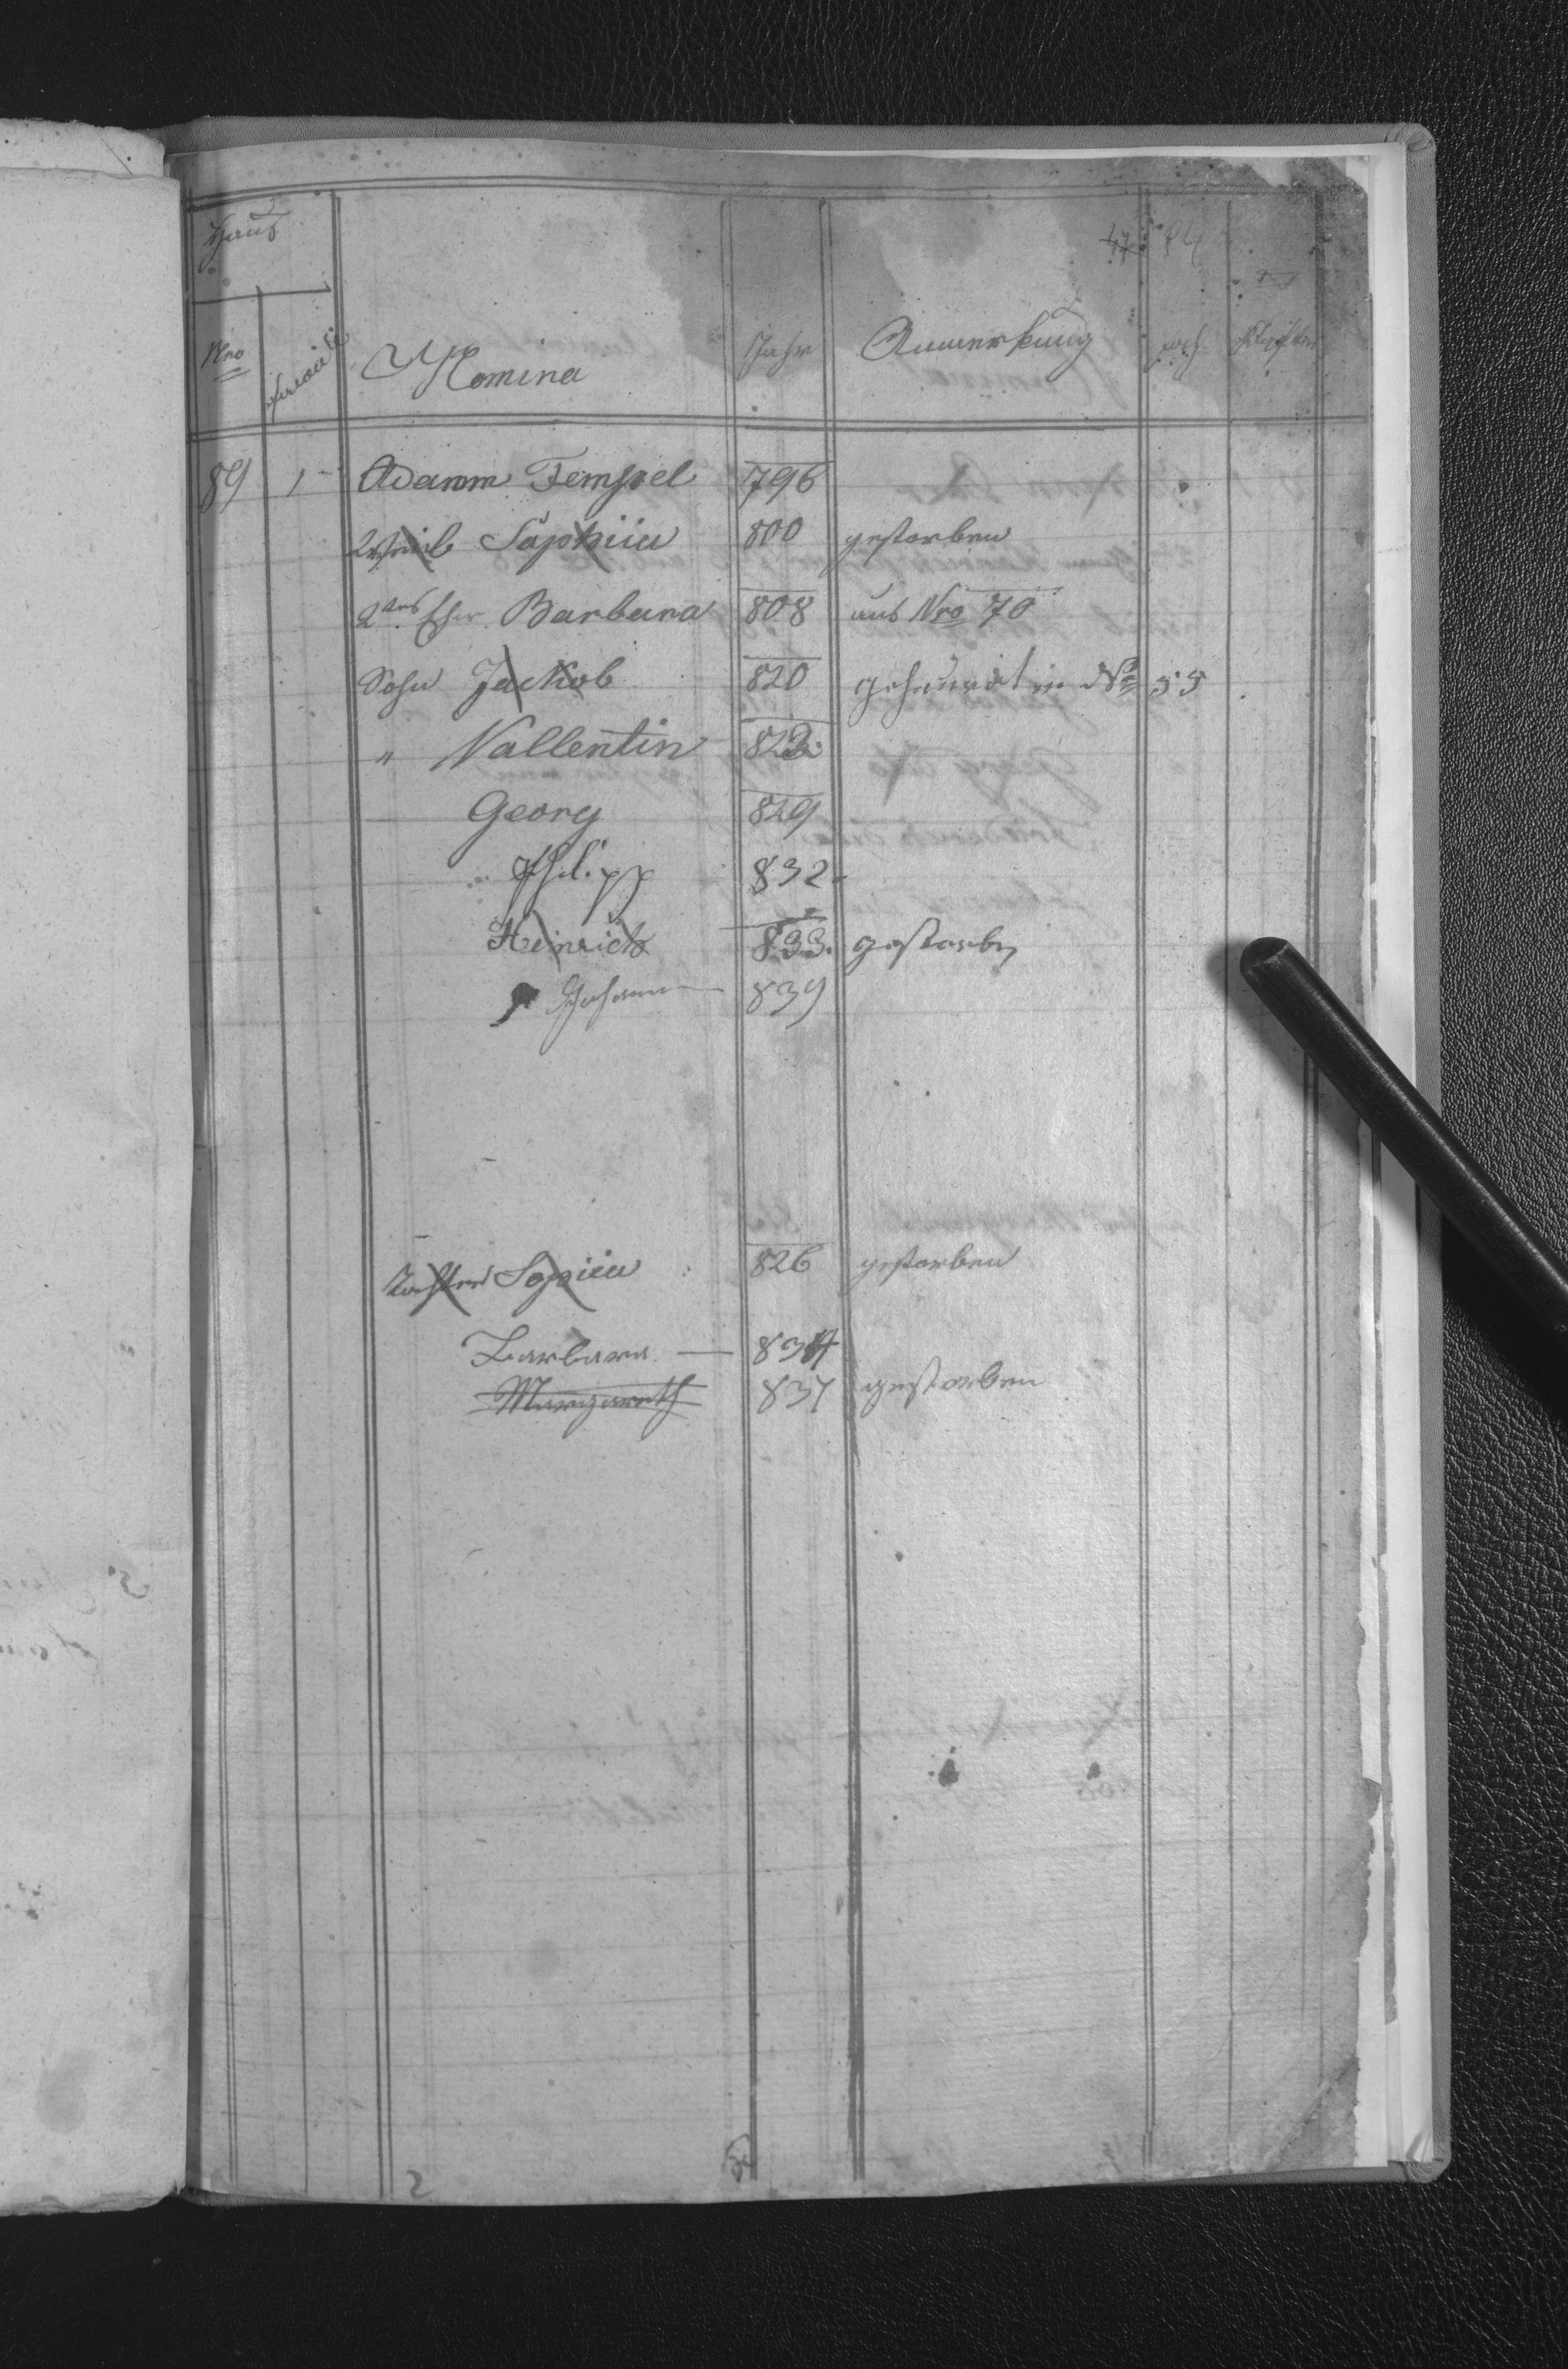 Haus
47 84
Nro Familie Nomina Jahr Anmerkung Joch
89 1 Adamm Tempel 796
Weib Sophiia 800 gestorben
2tes Ehw. Barbara 808 aus Nro 70
Sohn Jackob 820 geheuerat in Nro 55
" Vallentin 823
Georg 829
" Philipp 832
Heinrich 833. gestorben
Johann 839
Tochter Sopiia 826 gestorben
Barbara 834
Margareth 837 gestorben